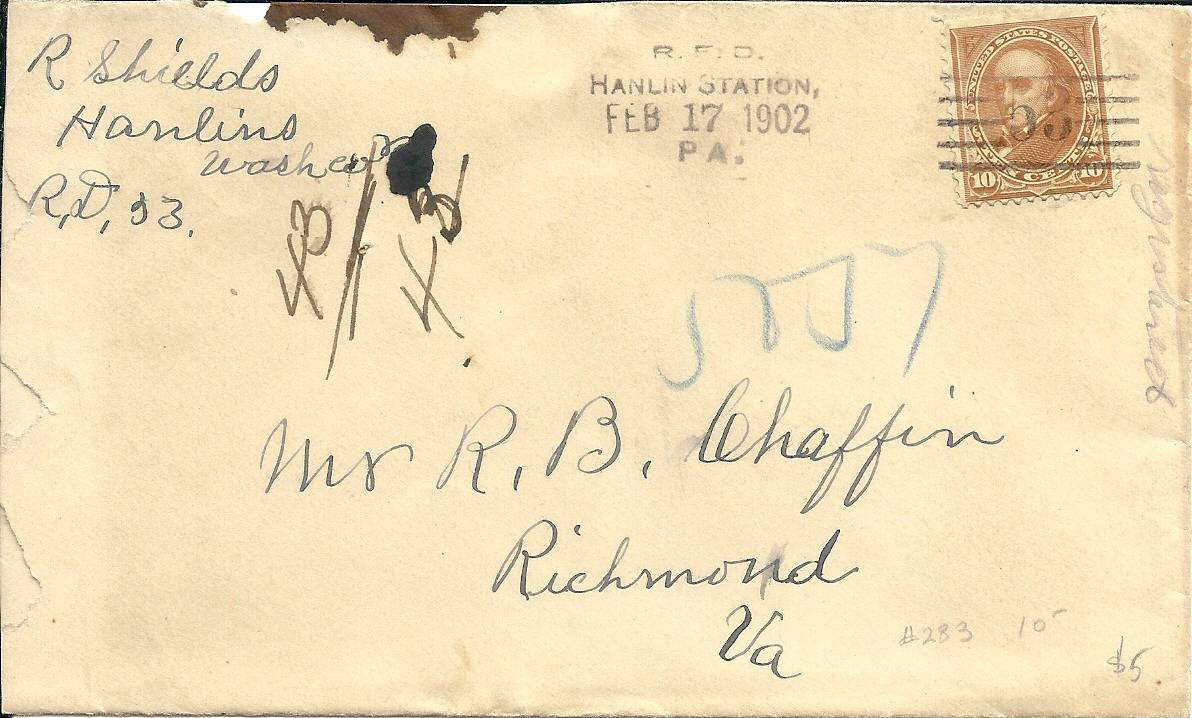 R Shields
Hanlins
Wash co
R.D. 53.
R. F. D.
HANLIN STATION,
FEB 17 1902
PA.
UNITED STATES POSTAGE
53
10 TEN CENTS 10
43
43
5227
Registered
Mr R. B. Chaffin
Richmond
Va
#283 10
$5